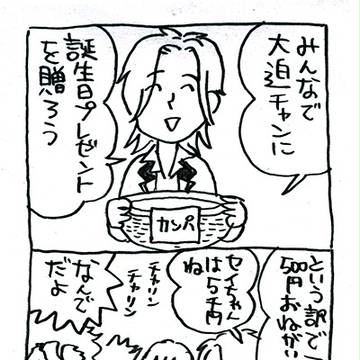 みんなで
大迫チャンに
誕生日プレゼント
を贈ろう
カンパ
という訳で
500円おねがい
は5千円
ね
チャリン
チャリン
なんで
だよ